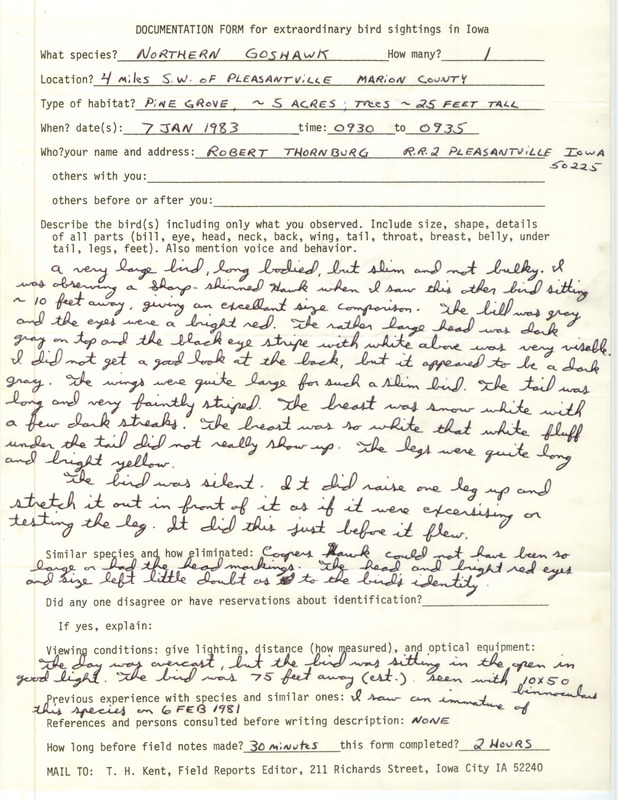 DOCUMENTATION FORM for extraordinary bird sightings in Iowa
What species? NORTHERN GOSHAWK How many? 1
Location? 4 miles S.W. OF PLEASANTVILLE MARION COUNTY
Type of habitat? PINE GROVE, ~ 5 ACRES; TREES ~ 25 FEET TALL
When? date(s): 7 JAN 1983 time: 0930 to 0935
Who?your name and address: ROBERT THORNBURG R.R.2 PLEASANTVILLE IOWA
50225
others with you:
others before or after you:
Describe the bird(s) including only what you observed. Include size, shape, details
of all parts (bill, eye, head, neck, back, wing, tail, throat, breast, belly, under
tail, legs, feet). Also mention voice and behavior.
A very large bird, long bodied, but slim and not bulky. I
was observing a Sharp-shinned Hawk when I saw this other bird sitting
~ 10 feet away, giving an excellant size comparison. The bill was gray
and the eyes were a bright red. The rather large head was dark
gray on top and the black eye stripe with white above was very visable.
I did not get a good look at the back, but it appeared to be a dark
gray. The wings were quite large for such a slim bird. The tail was
long and very faintly striped. The breast was snow white with
a few dark streaks. The breast was so white that white fluff
under the tail did not really show up. The legs were quite long
and bright yellow.
The bird was silent. It did raise one leg up and
stretch it out in front of it as if it were excersising or
testing the leg. It did this just before it flew.
Similar species and how eliminated: Coopers Hawk could not have been so
large or had the head markings. The head and bright red eyes
and size left little doubt as to the birds identity.
Did any one disagree or have reservations about identification?
If yes, explain:
Viewing conditions: give lighting, distance (how measured), and optical equipment:
The day was overcast, but the bird was sitting in the open in
good light. The bird was 75 feet away (est.). seen with 10X50
binnoculars
Previous experience with species and similar ones: I saw an immature of
this species on 6 FEB 1981
References and persons consulted before writing description: NONE
How long before field notes made? 30 minutes this form completed? 2 HOURS
MAIL TO: T. H. Kent, Field Reports Editor, 211 Richards Street, Iowa City IA 52240